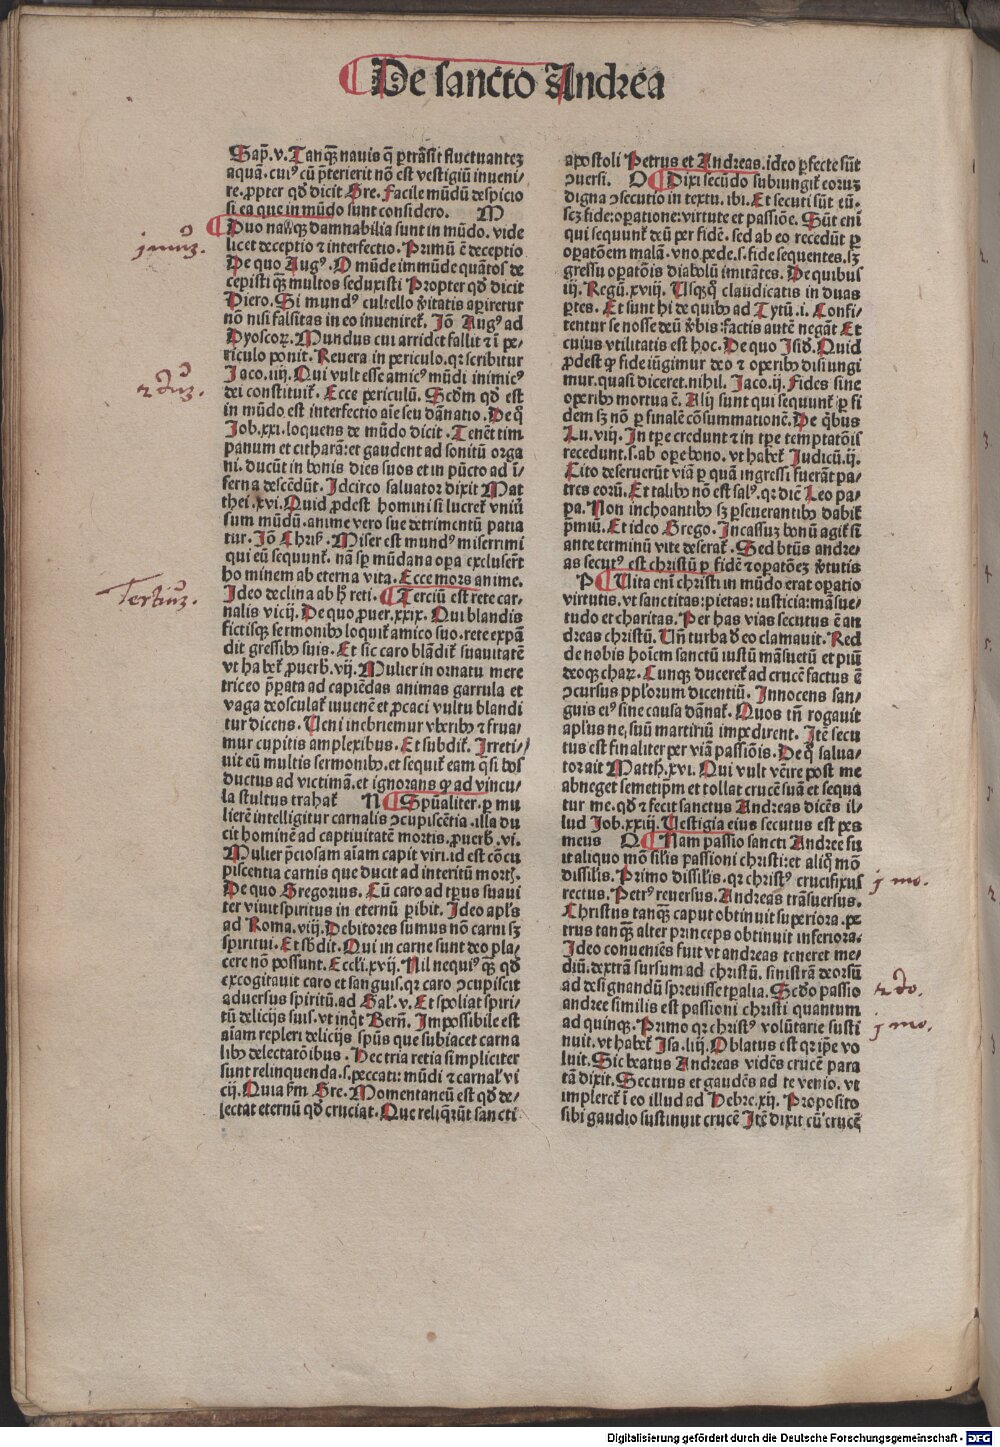 De sancto Andrea
Sap̄. v. Tanq̄ȝ nauis q̄ ꝑtrāsit fluctuanteȝ
aquā. cuiꝰ cū p̄terierit nō est vestigiū inueni-
re. ꝓpter qḋ dicit Gre. Facile mūdū despicio
si ea que in mūdo sunt considero. M
Duo nāqȝ damnabilia sunt in mūdo. vide
licet deceptio ⁊ interfectio. Primū ē deceptio
De quo Augꝰ. O mūde immūde quātos de
cepisti qȝ multos seduxisti Propter qḋ dicit
Hiero. Si mundꝰ cultello v̄itatis aꝑiretur
nō nisi falsitas in eo inuenireƭ. Jō Augꝰ ad
Dyoscoꝝ. Mundus cui arridet fallit ⁊ ī pe-
riculo ponit. Reuera in periculo. qꝛ scribitur
Jaco. iiij. Qui vult esse amicꝰ mūdi inimicꝰ
dei constituiƭ. Ecce periculū. Scḋm qḋ est
in mūdo est interfectio aīe seu dānatio. De q̊
Job. xxi. loquens de mūdo dicit. Tenēt tim
panum et citharā: et gaudent ad sonitū orga
ni. ducūt in bonis dies suos et in pūcto ad ī-
ferna descēdūt. Jdcirco saluator dixit Mat
thei. xvi. Quid ꝓdest homini si lucreƭ vniū
sum mūdū. anime vero sue detrimentū patia
tur. Jō Chriß. Miser est mundꝰ miserrimi
qui eū sequunƭ. nā sp̄ mūdana oꝑa excluserūt
ho minem ab eterna vita. Ecce mors anime.
Jdeo declina ab ħ reti. Terciū est rete car-
nalis vicij. De quo ꝓuer. xxix. Qui blandis
fictisqȝ sermonibꝰ loquiƭ amico suo. rete expā
dit gressibꝰ suis. Et sic caro blādiƭ suauitatē
vt habeƭ ꝓuerb̄. vij. Mulier in ornatu mere
triceo p̄ꝑata ad capiēdas animas garrula et
vaga deosculaƭ iuuenē et ꝓcaci vultu blandi
tur dicens. Ueni inebriemur vberibꝰ ⁊ frua-
mur cupitis amplexibus. Et subdiƭ. Jrreti-
uit eū multis sermonibꝰ. et sequiƭ eam q̄si bos
ductus ad victimā. et ignorans ꝙ ad vincu-
la stultus trahaƭ N Spūaliter. ꝑ mu
lierē intelligitur carnalis ↄcupiscētia. illa du
cit hominē ad captiuitatē mortis. ꝓuerb̄. vi.
Mulier p̄ciosam aīam capit viri. id est cōcu
piscentia carnis que ducit ad interitū mortꝭ.
De quo Gregorius. Cū caro ad tp̄us suaui
ter viuit spiritus in eternū ꝑibit. Jdeo apl̄s
ad Roma. viij. Debitores sumus nō carni sȝ
spiritui. Et sb̄dit. Qui in carne sunt deo pla-
cere nō possunt. Eccl̄i. xvij. Nil nequiꝰ qȝ qḋ
excogitauit caro et sanguis. qꝛ caro ↄcupiscit
aduersus spiritū. ad Gal̄. v. Et spoliat spiri-
tū delicijs suis. vt inq̇t Bern̄. Jmpossibile est
aīam repleri delicijs spūs que subiacet carna
libꝰ delectatōibus. Hec tria retia simpliciter
sunt relinquenda. s. peccati: mūdi ⁊ carnal̄ vi
cij. Quia ẜm Gre. Momentaneū est qḋ de-
lectat eternū qḋ cruciat. Que reliq̄rūt sancti
apostoli Petrus et Andreas. ideo ꝑfecte sūt
ↄuersi. O Dixi secūdo subiungiƭ eoruȝ
digna ↄsecutio in textu. ibi. Et secuti sūt eū.
scȝ fide: oꝑatione: virtute et passiōe. Sūt enī
qui sequunƭ deū per fidē. sed ab eo recedūt ꝑ
oꝑatōem malā. vno pede. s. fide sequentes. sȝ
gressu oꝑatōis diabolū imitātes. De quibus
iij. Regū. xviij. Usqȝq̊ claudicatis in duas
ꝑtes. Et sunt hi de quibꝰ ad Tytū. i. Confi-
tentur se nosse deū v̄bis: factis autē negāt Et
cuius vtilitatis est hoc. De quo Jsid̄. Quid
ꝓdest ꝙ fide iūgimur deo ⁊ operibꝰ disiungi
mur. quasi diceret. nihil. Jaco. ij. Fides sine
operibꝰ mortua ē. Alij sunt qui sequunƭ ꝑ fi
dem sȝ nō ꝑ finalē cōsummationē. De q̇bus
Lu. viij. Jn tp̄e credunt ⁊ in tp̄e temptatōis
recedunt. s. ab oꝑe bono. vt habeƭ Judicū. ij.
Cito deseruerūt viā ꝑ quā ingressi fuerāt pa-
tres eorū. Et talibꝰ nō est salꝰ. qꝛ dicē Leo pa-
pa. Non inchoantibꝰ sȝ ꝑseuerantibꝰ dabiƭ
p̄miū. Et ideo Grego. Jncassuȝ bonū agiƭ si
ante terminū vite deseraƭ. Sed btūs andre-
as secutꝰ est christū ꝑ fidē ⁊ oꝑatōeȝ v̄tutis
P Uita enī christi in mūdo erat oꝑatio
virtutis. vt sanctitas: pietas: iusticia: māsue-
tudo et charitas. Per has vias secutus ē an
dreas christū. Un̄ turba ḋ eo clamauit. Red
de nobis hoīem sanctū iustū māsuetū et piū
deoqȝ charꝝ. Cunqȝ ducereƭ ad crucē factus ē
ↄcursus ppl̄orum dicentiū. Jnnocens san-
guis eiꝰ sine causa dānaƭ. Quos tn̄ rogauit
apl̄us ne suū martiriū impedirent. Jtē secu
tus est finaliter per viā passiōis. De q̊ salua-
tor ait Matth. xvi. Qui vult vēire post me
abneget semetip̄m et tollat crucē suā et sequa
tur me. qḋ ⁊ fecit sanctus Andreas dicēs il-
lud Job. xxiij. Uestigia eius secutus est pes
meus Q Nam passio sancti Andree fu
it aliquo mō sil̄is passioni christi: et aliq̊ mō
dissil̄is. Primo dissil̄is. qꝛ christꝰ crucifixus
rectus. Petrꝰ reuersus. Andreas trāsuersus.
Christus tanqȝ caput obtinuit superiora. pe
trus tanqȝ alter princeps obtinuit inferiora.
Jdeo conueniēs fuit vt andreas teneret me-
diū. dextrā sursum ad christū. sinistrā deorsū
ad designandū spreuisse tꝑalia. Scḋo passio
andree similis est passioni christi quantum
ad quinqȝ. Primo qꝛ christꝰ volūtarie susti
nuit. vt habeƭ Jsa. liij. Oblatus est qꝛ ip̄e vo
luit. Sic beatus Andreas vidēs crucē para
tā dixit. Securus et gaudēs ad te venio. vt
implereƭ ī eo illud ad Hebre. xij. Proposito
sibi gaudio sustinuit crucē Jtē dixit cū crucē
j munȝ.
2 dūȝ.
Tertiūȝ.
j mo.
2 do.
j mo.
Digitalisierung gefördert durch die Deutsche Forschungsgemeinschaft - DFG